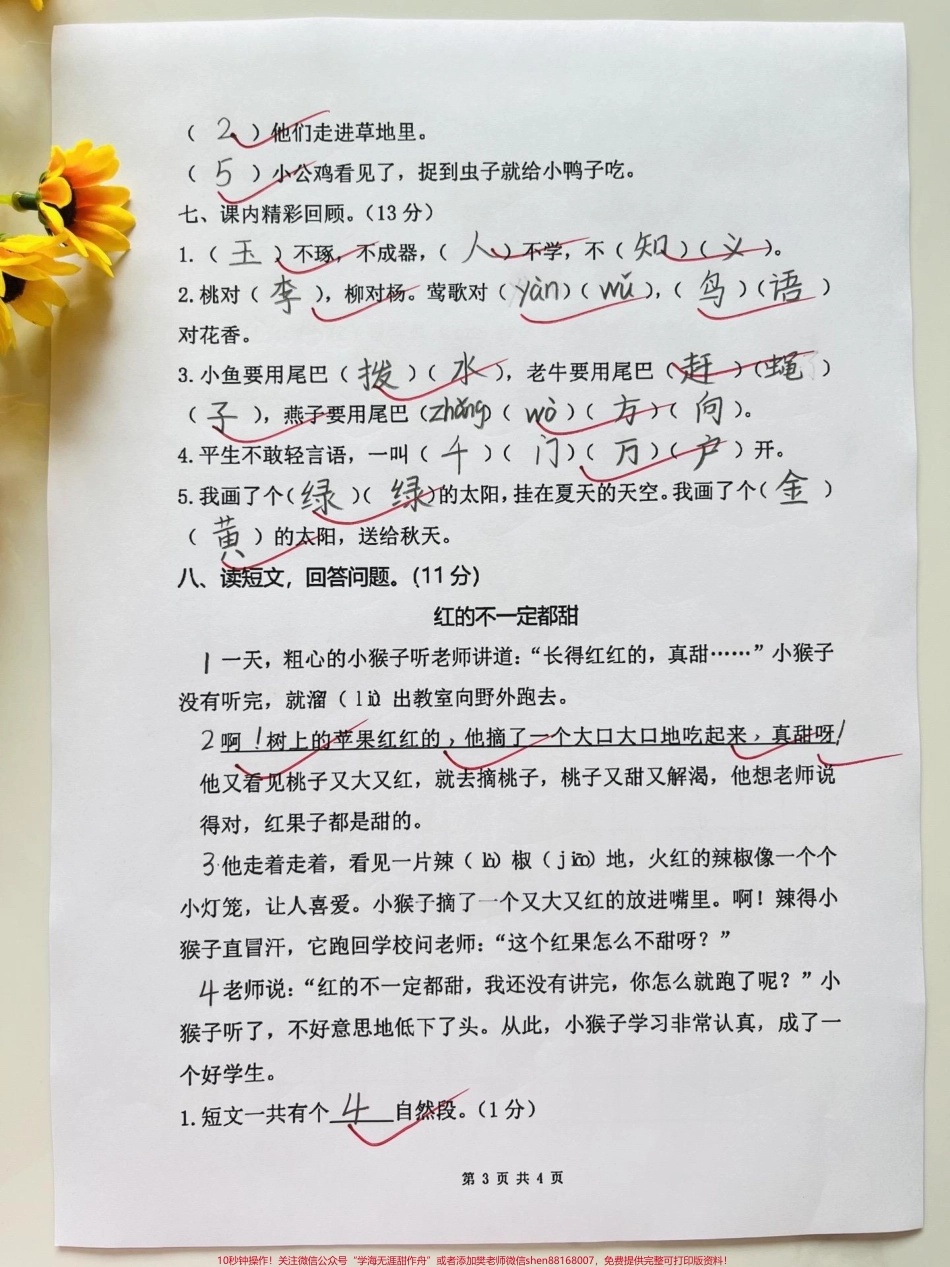 （ 2 ）他们走进草地里。
（ 5 ）小公鸡看见了，捉到虫子就给小鸭子吃。
七、课内精彩回顾。（13 分）
1.（ 玉 ）不琢，不成器，（ 人 ）不学，不（ 知 ）（ 义 ）。
2.桃对（ 李 ），柳对杨。莺歌对（ yàn ）（ wǔ ），（ 鸟 ）（ 语 ）
对花香。
3.小鱼要用尾巴（ 拨 ）（ 水 ），老牛要用尾巴（ 赶 ）（ 蝇 ）
（ 子 ），燕子要用尾巴（zhǎng）（ wò ）（ 方 ）（ 向 ）。
4.平生不敢轻言语，一叫（ 千 ）（ 门 ）（ 万 ）（ 户 ）开。
5.我画了个（ 绿 ）（ 绿 ）的太阳，挂在夏天的天空。我画了个（ 金 ）
（ 黄 ）的太阳，送给秋天。
八、读短文，回答问题。（11 分）
红的不一定都甜
1 一天，粗心的小猴子听老师讲道：“长得红红的，真甜……”小猴子
没有听完，就溜（ liū 出教室向野外跑去。
2 啊！树上的苹果红红的，他摘了一个大口大口地吃起来，真甜呀！
他又看见桃子又大又红，就去摘桃子，桃子又甜又解渴，他想老师说
得对，红果子都是甜的。
3 他走着走着，看见一片辣（ là）椒（ jiāo）地，火红的辣椒像一个个
小灯笼，让人喜爱。小猴子摘了一个又大又红的放进嘴里。啊！辣得小
猴子直冒汗，它跑回学校问老师：“这个红果怎么不甜呀？”
4 老师说：“红的不一定都甜，我还没有讲完，你怎么就跑了呢？”小
猴子听了，不好意思地低下了头。从此，小猴子学习非常认真，成了一
个好学生。
1.短文一共有个 4 自然段。（1 分）
第 3 页 共 4 页
10秒钟操作！关注微信公众号“学海无涯甜作舟”或者添加樊老师微信shen88168007，免费提供完整可打印版资料！